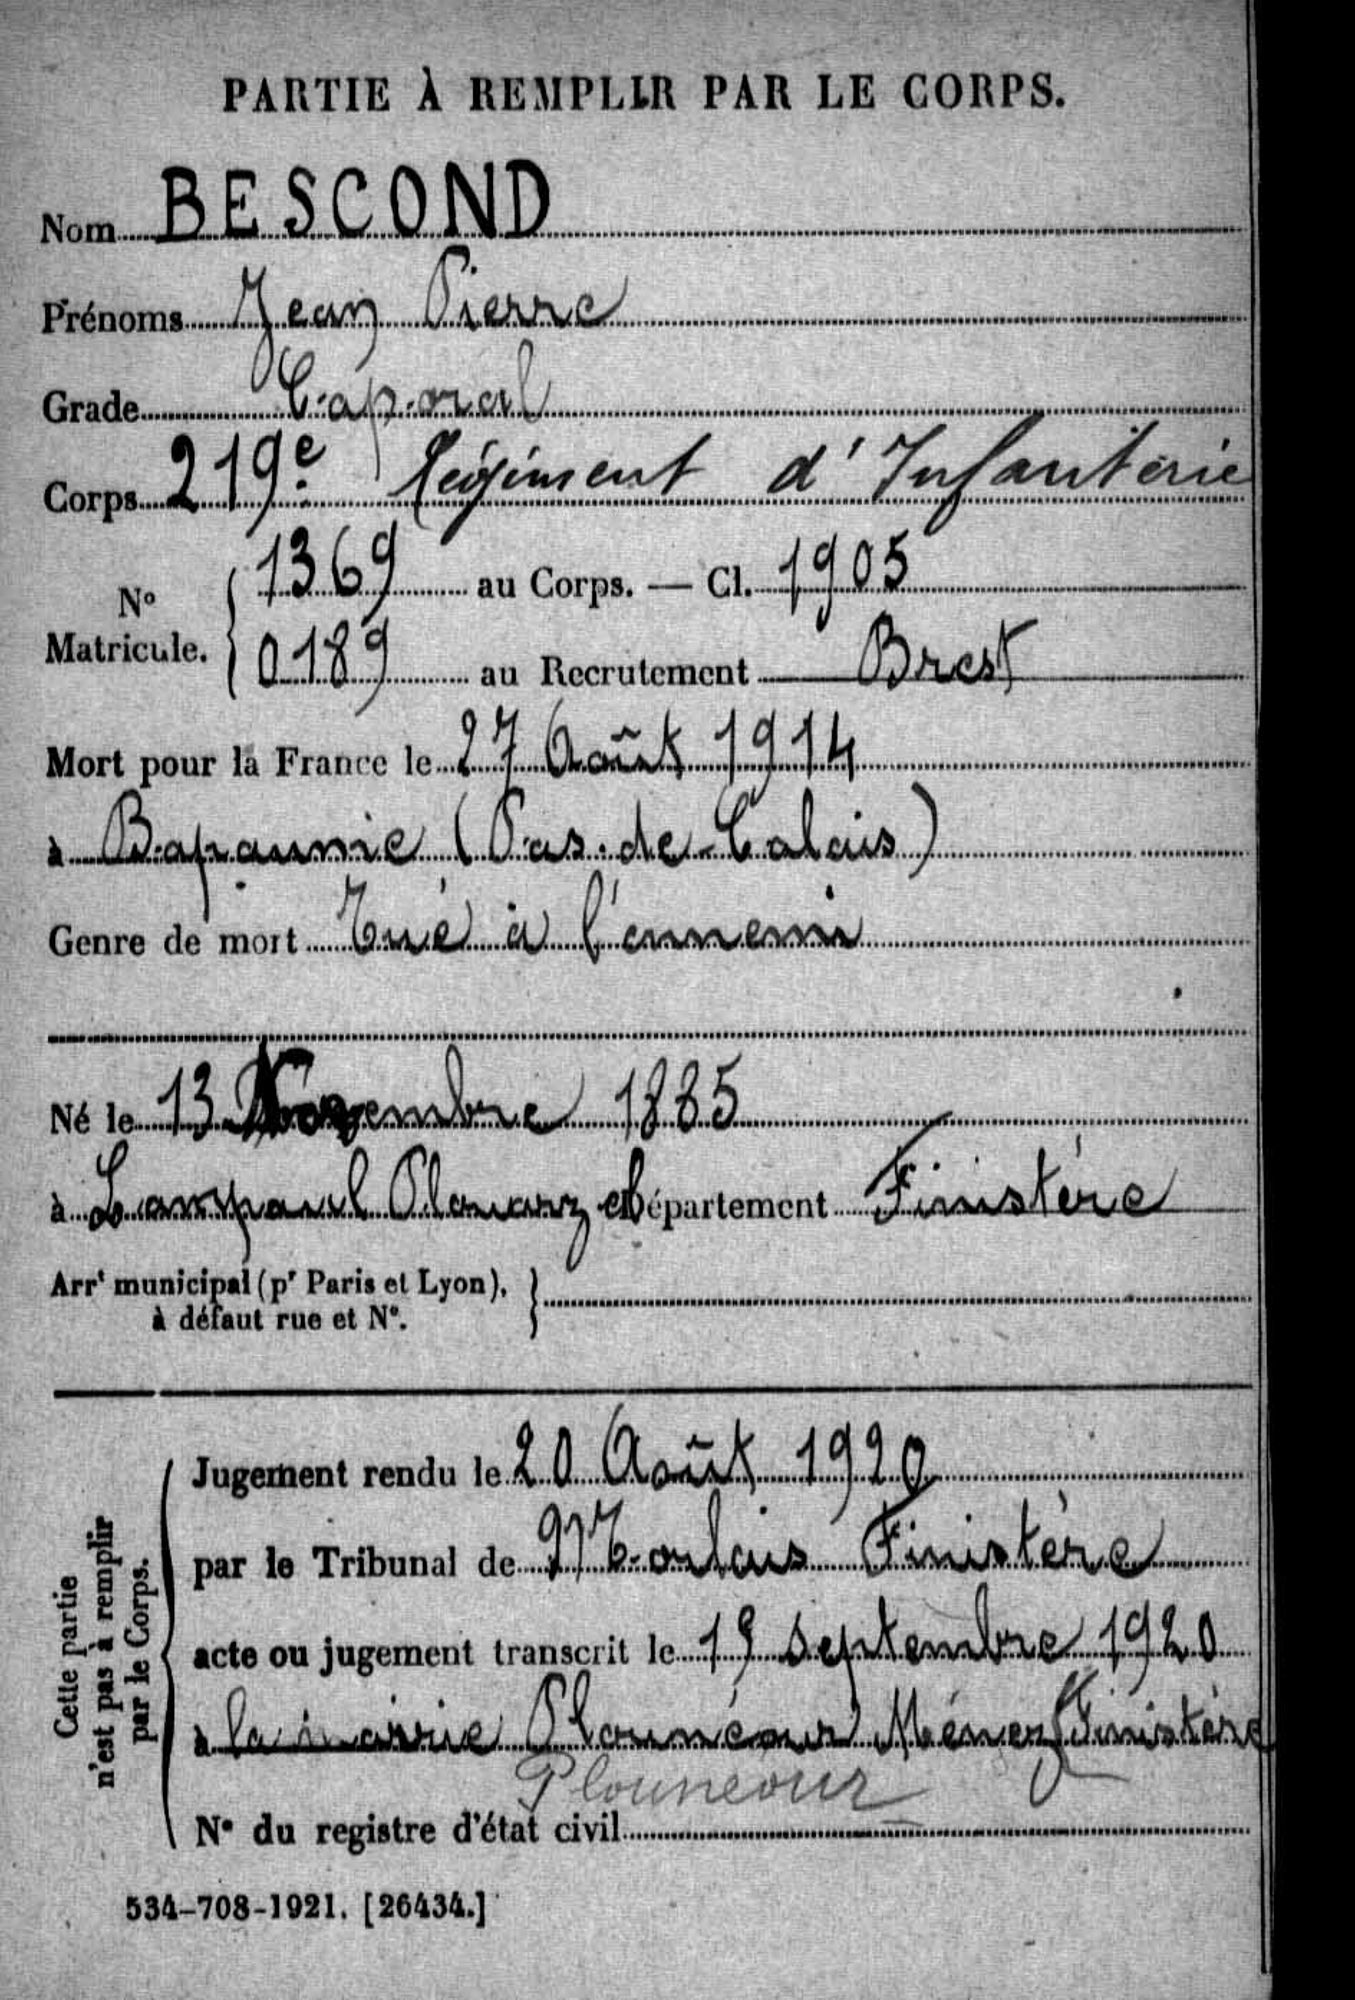 PARTIE À REMPLIR PAR LE CORPS.
Nom BESCOND
Prénoms Jean Pierre
Grade Caporal
Corps 219e Régiment d'Infanterie
No Matricule. 1369 au Corps. — Cl. 1905
0189 au Recrutement Brest
Mort pour la France le 27 Août 1914
à Bapaume (Pas-de-Calais)
Genre de mort Tué à l'ennemi
Né le 13 Novembre 1885
à Lampaul Plouarzel Département Finistère
Arrt municipal (pr Paris et Lyon),
à défaut rue et No.
Cette partie
n'est pas à remplir
par le Corps.
Jugement rendu le 20 Août 1920
par le Tribunal de Morlaix Finistère
acte ou jugement transcrit le 19 septembre 1920
à la mairie Plounéour Ménez (Finistère
Plounéour
No du registre d'état civil
534-708-1921. [26434.]